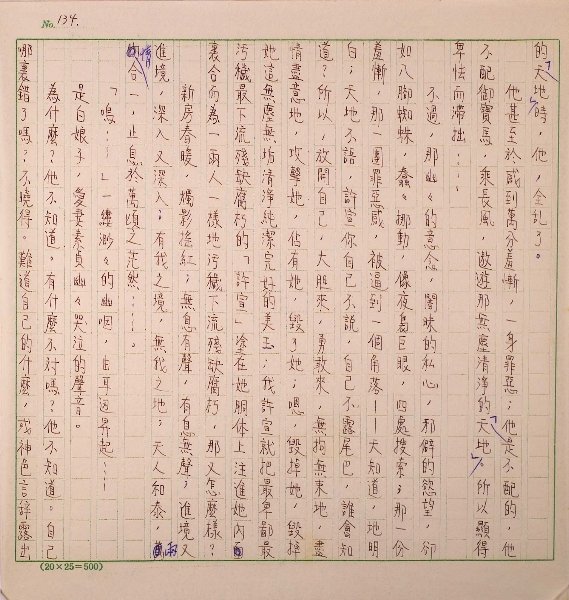 No. 134.
的天地時，他，全亂了。
他甚至於感到萬分羞慚，一身罪惡；他是不配的，他
不配御寶馬，乘長風，遨遊那無塵清淨的天地，所以顯得
卑怯而滯拙……。
不過，那幽々的意念，闇昧的私心，邪僻的慾望，卻
如八腳蜘蛛，蠢々挪動，像夜梟巨眼，四處搜索；那一份
羞慚，那一團罪惡感，被逼到一個角落——天知道，地明
白；天地不語，許宣你自己不說，自己不露尾巴，誰會知
道？所以，放開自己，大膽來，勇敢來，無拘無束地，盡
情盡意地，攻擊她，佔有她，毀了她；嗯，毀掉她，毀掉
她這無塵無垢清淨純潔完好的美玉；我許宣就把最卑鄙最
污穢最下流殘缺腐朽的「許宣」塗在她胴体上注進她內
裏合而為一兩人一樣地污穢下流殘缺腐朽，那又怎麼樣？
新房春暖，燭影搖紅；無息有聲，有息無聲；進境又
進境，深入又深入；有我之境，無我之地；天人和泰，
合一，止息於萬頃之茫然……。
「嗚……」一縷渺々的幽咽，自耳邊昇起……
是白娘子，愛妻素貞幽々哭泣的聲音。
為什麼？他不知道。有什麼不對嗎？他不知道。自己
哪裏錯了嗎？不曉得。難道自己的什麼，或神色言辭露出
(20×25=500)